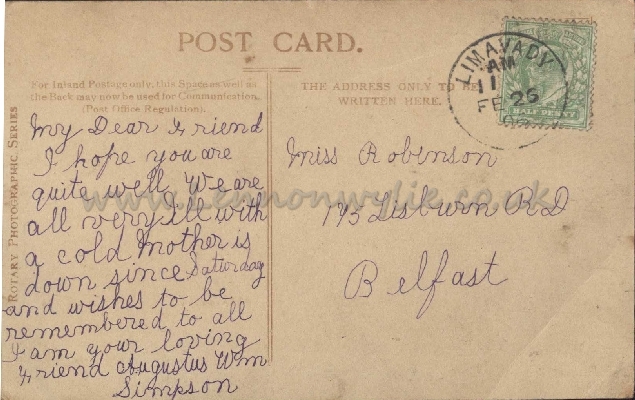 POST CARD.
For Inland Postage only, this Space as well as
the Back may now be used for Communication.
(Post Office Regulation).
THE ADDRESS ONLY TO BE
WRITTEN HERE.
ROTARY PHOTOGRAPHIC SERIES
LIMAVADY
AM
FE 26
HALF PENNY
My Dear Friend
I hope you are
quite well We are
all very ill with
a cold Mother is
down since Saturday
and wishes to be
remembered to all
I am your loving
Friend Augustus Wm
Simpson
Miss Robinson
173 Lisburn RD
Belfast
www.Lennonwylie.co.uk